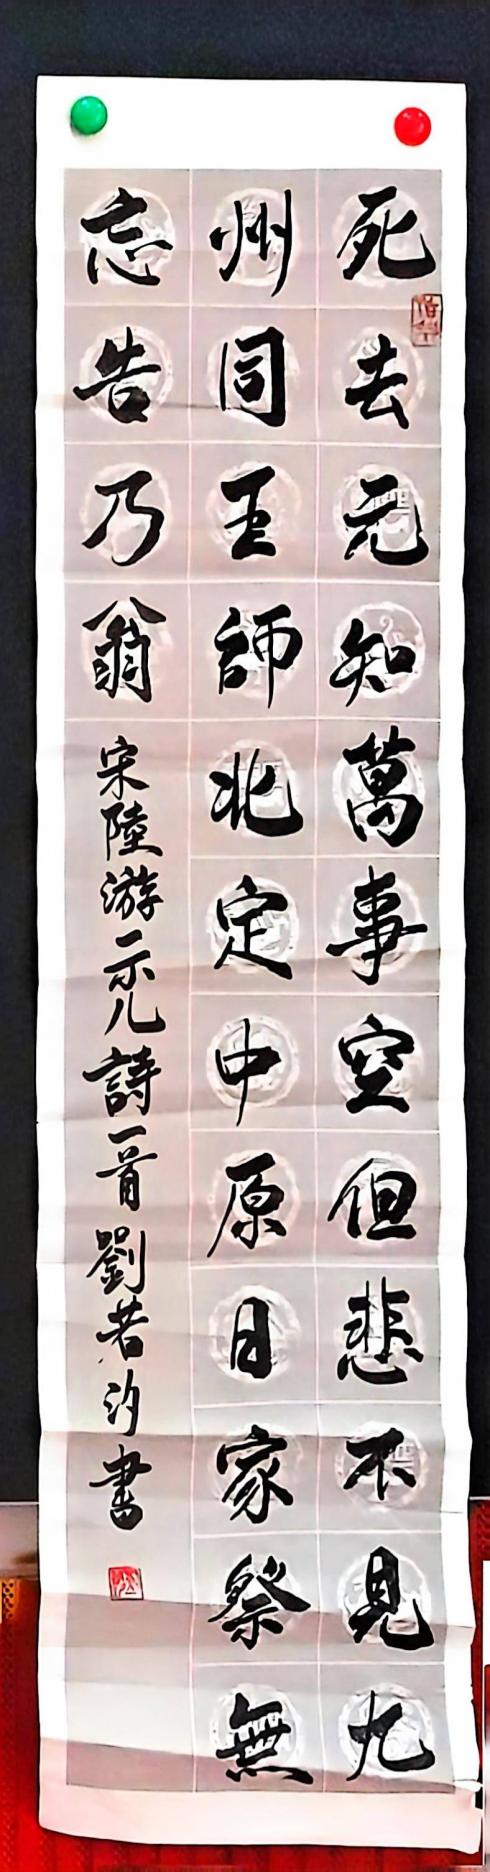 死去元知萬事空但悲不見九
州同王師北定中原日家祭無
忘告乃翁
宋陸游示兒詩一首劉若汐書